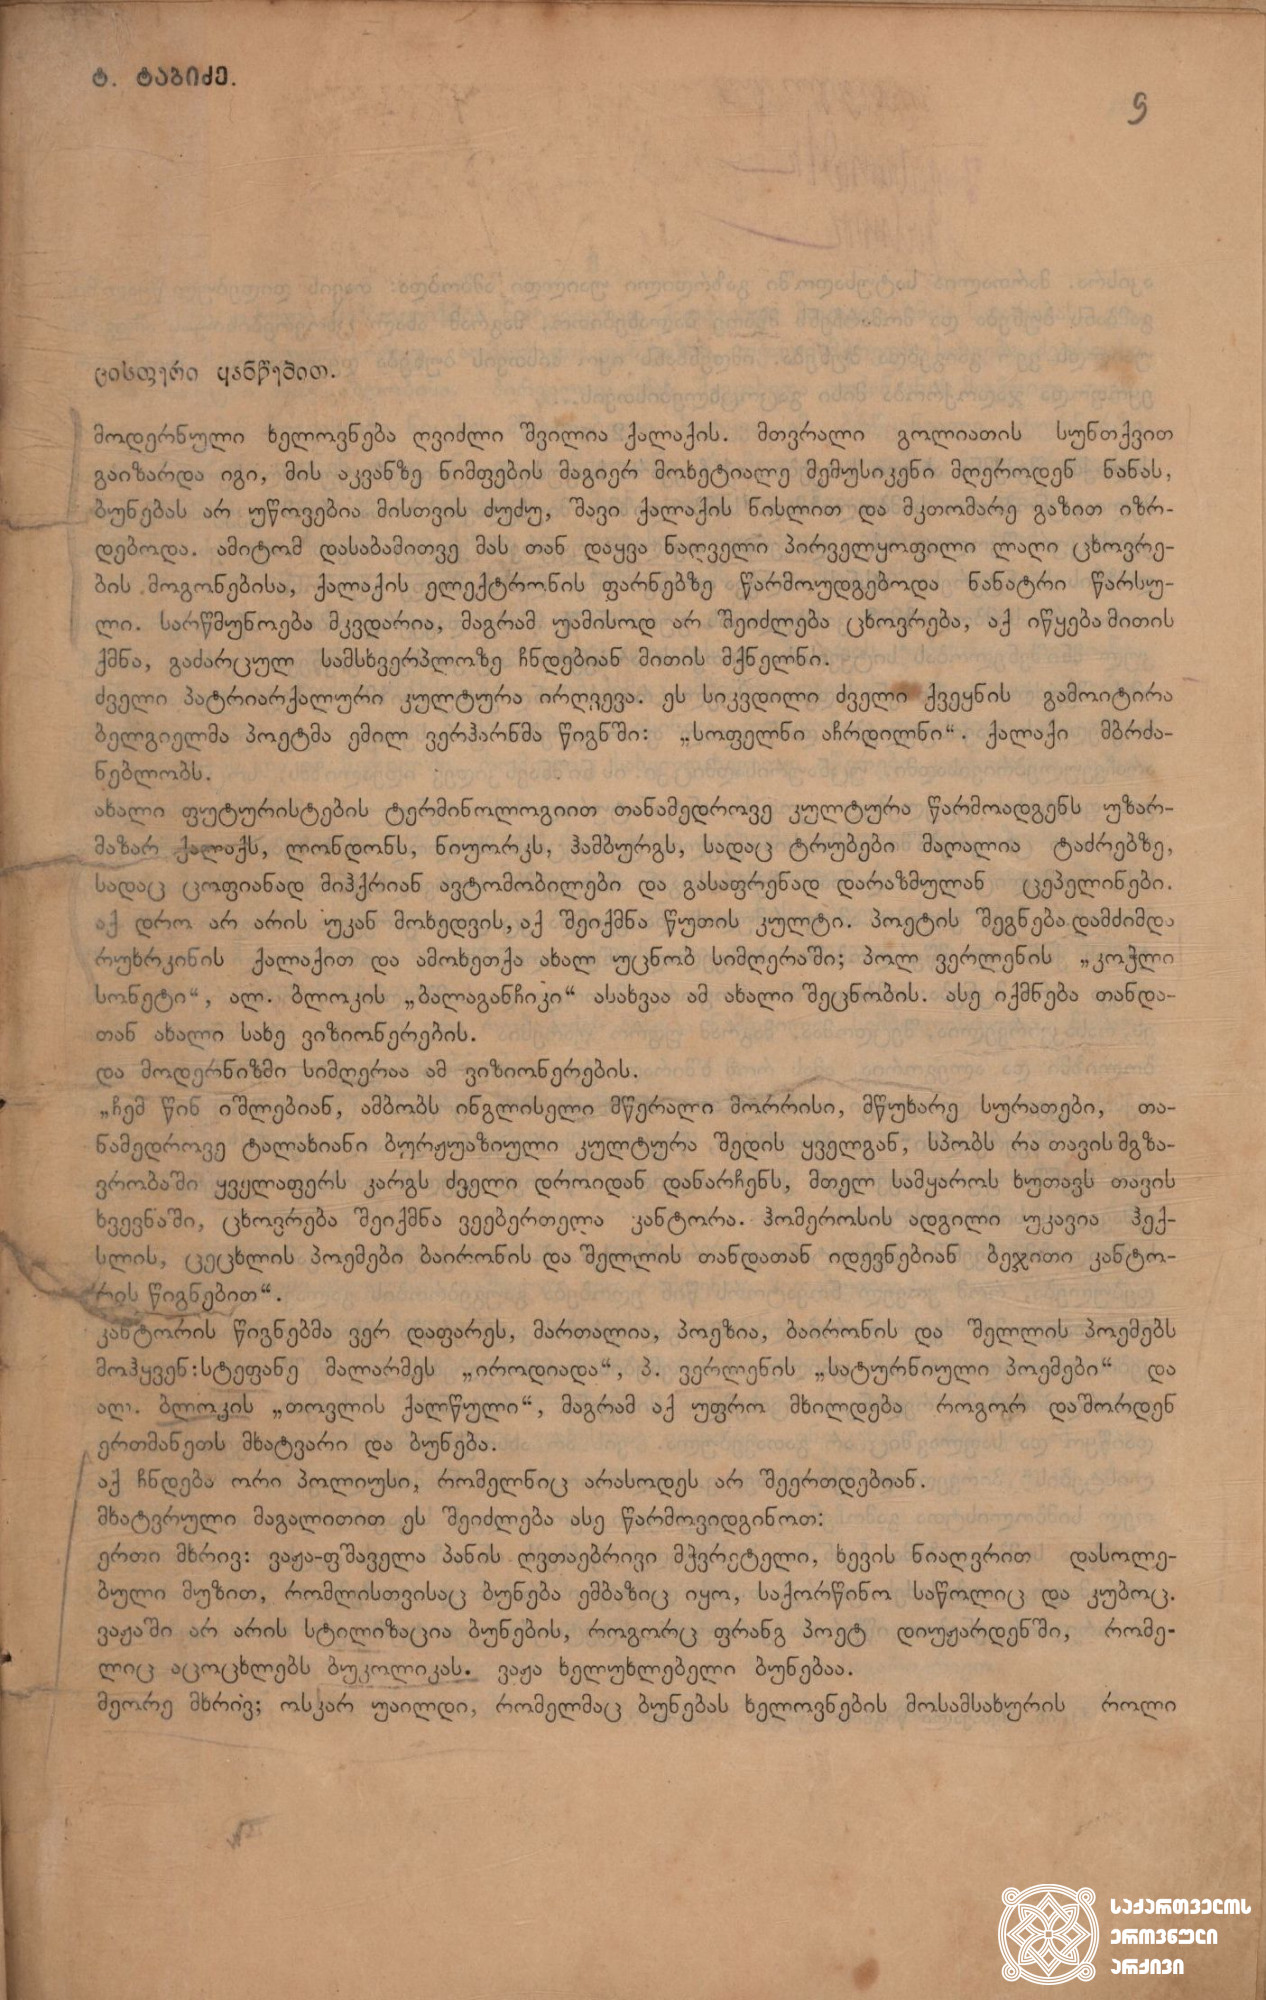 ტ. ტაბიძე.
9
ცისფერი ყანწებით.
მოდერნული ხელოვნება ღვიძლი შვილია ქალაქის. მთვრალი გოლიათის სუნთქვით
გაიზარდა იგი, მის აკვანზე ნიმფების მაგიერ მოხეტიალე მემუსიკენი მღეროდენ ნანას,
ბუნებას არ უწოვებია მისთვის ძუძუ, შავი ქალაქის ნისლით და მკთომარე გაზით იზრ-
დებოდა. ამიტომ დასაბამითვე მას თან დაყვა ნაღველი პირველყოფილი ლაღი ცხოვრე-
ბის მოგონებისა, ქალაქის ელექტრონის ფარნებზე წარმოუდგებოდა ნანატრი წარსუ-
ლი. სარწმუნოება მკვდარია, მაგრამ უამისოდ არ შეიძლება ცხოვრება, აქ იწყება მითის
ქმნა, გაძარცულ სამსხვერპლოზე ჩნდებიან მითის მქნელნი.
ძველი პატრიარქალური კულტურა ირღვევა. ეს სიკვდილი ძველი ქვეყნის გამოიტირა
ბელგიელმა პოეტმა ემილ ვერჰარნმა წიგნში: „სოფელნი აჩრდილნი“. ქალაქი მბრძა-
ნებლობს.
ახალი ფუტურისტების ტერმინოლოგიით თანამედროვე კულტურა წარმოადგენს უზარ-
მაზარ ქალაქს, ლონდონს, ნიუორკს, ჰამბურგს, სადაც ტრუბები მაღალია ტაძრებზე,
სადაც ცოფიანად მიჰქრიან ავტომობილები და გასაფრენად დარაზმულან ცეპელინები.
აქ დრო არ არის უკან მოხედვის, აქ შეიქმნა წუთის კულტი. პოეტის შეგნება დამძიმდა
რუხრკინის ქალაქით და ამოხეთქა ახალ უცნობ სიმღერაში; პოლ ვერლენის „კოჭლი
სონეტი“, ალ. ბლოკის „ბალაგანჩიკი“ ასახვაა ამ ახალი შეცნობის. ასე იქმნება თანდა-
თან ახალი სახე ვიზიონერების.
და მოდერნიზმი სიმღერაა ამ ვიზიონერების.
„ჩემ წინ იშლებიან, ამბობს ინგლისელი მწერალი მორრისი, მწუხარე სურათები, თა-
ნამედროვე ტალახიანი ბურჟუაზიული კულტურა შედის ყველგან, სპობს რა თავის მგზა-
ვრობაში ყველაფერს კარგს ძველი დროიდან დანარჩენს, მთელ სამყაროს ხუთავს თავის
ხვევნაში, ცხოვრება შეიქმნა ვეებერთელა კანტორა. ჰომეროსის ადგილი უკავია ჰექ-
სლის, ცეცხლის პოემები ბაირონის და შელლის თანდათან იდევნებიან ბეჯითი კანტო-
რის წიგნებით“.
კანტორის წიგნებმა ვერ დაფარეს, მართალია, პოეზია, ბაირონის და შელლის პოემებს
მოჰყვენ:სტეფანე მალარმეს „იროდიადა“, პ. ვერლენის „სატურნიული პოემები“ და
ალ. ბლოკის „თოვლის ქალწული“, მაგრამ აქ უფრო მხილდება როგორ დაშორდენ
ერთმანეთს მხატვარი და ბუნება.
აქ ჩნდება ორი პოლიუსი, რომელნიც არასოდეს არ შეერთდებიან.
მხატვრული მაგალითით ეს შეიძლება ასე წარმოვიდგინოთ:
ერთი მხრივ: ვაჟა-ფშაველა პანის ღვთაებრივი მჭვრეტელი, ხევის ნიაღვრით დასოლე-
ბული მუზით, რომლისთვისაც ბუნება ემბაზიც იყო, საქორწინო საწოლიც და კუბოც.
ვაჟაში არ არის სტილიზაცია ბუნების, როგორც ფრანგ პოეტ დიუჟარდენში, რომე-
ლიც აცოცხლებს ბუკოლიკას. ვაჟა ხელუხლებელი ბუნებაა.
მეორე მხრივ; ოსკარ უაილდი, რომელმაც ბუნებას ხელოვნების მოსამსახურის როლი
საქართველოს
ეროვნული
არქივი